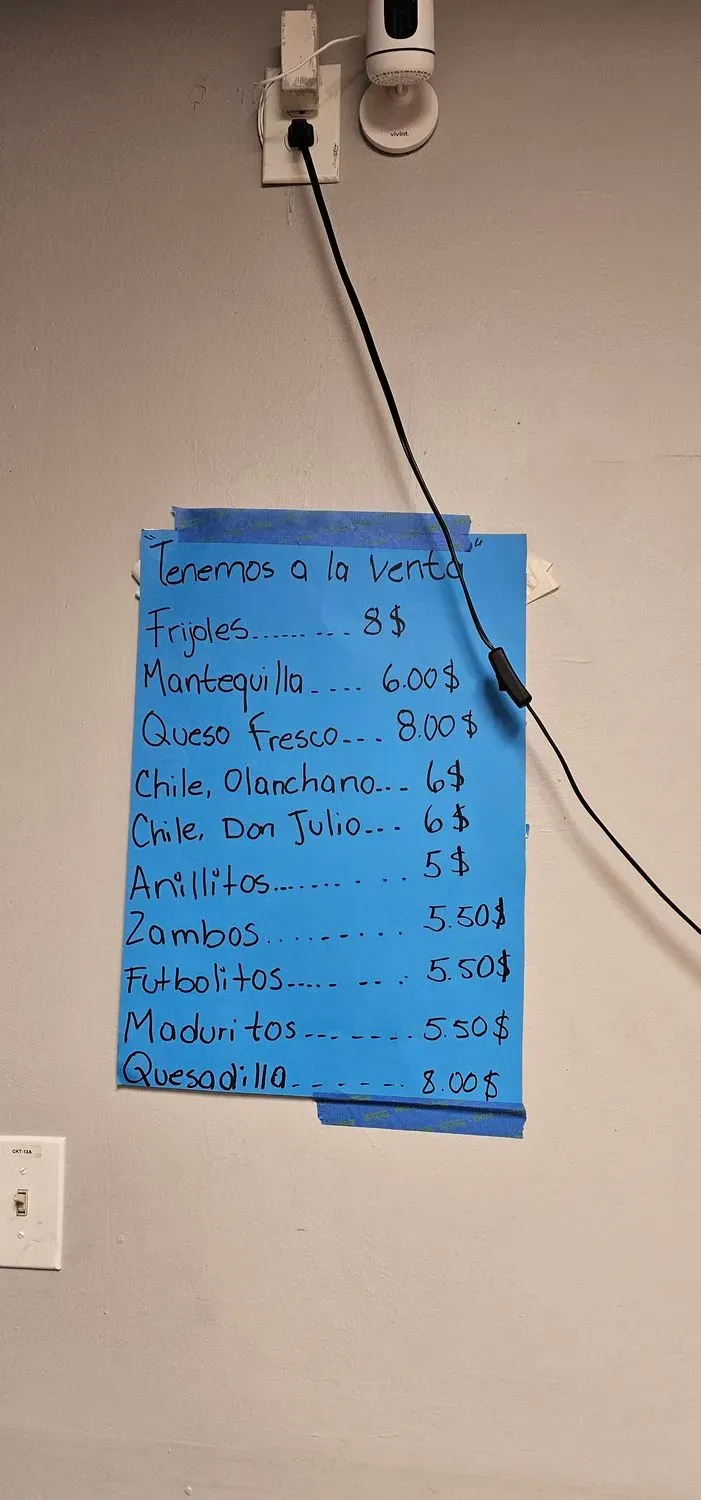 vivint.
"Tenemos a la venta"
Frijoles........ 8$
Mantequilla.... 6.00$
Queso fresco... 8.00$
Chile, Olanchano... 6$
Chile, Don Julio... 6$
Anillitos.......... 5$
Zambos........... 5.50$
Futbolitos......... 5.50$
Maduritos........ 5.50$
Quesadilla....... 8.00$
CKT-13A